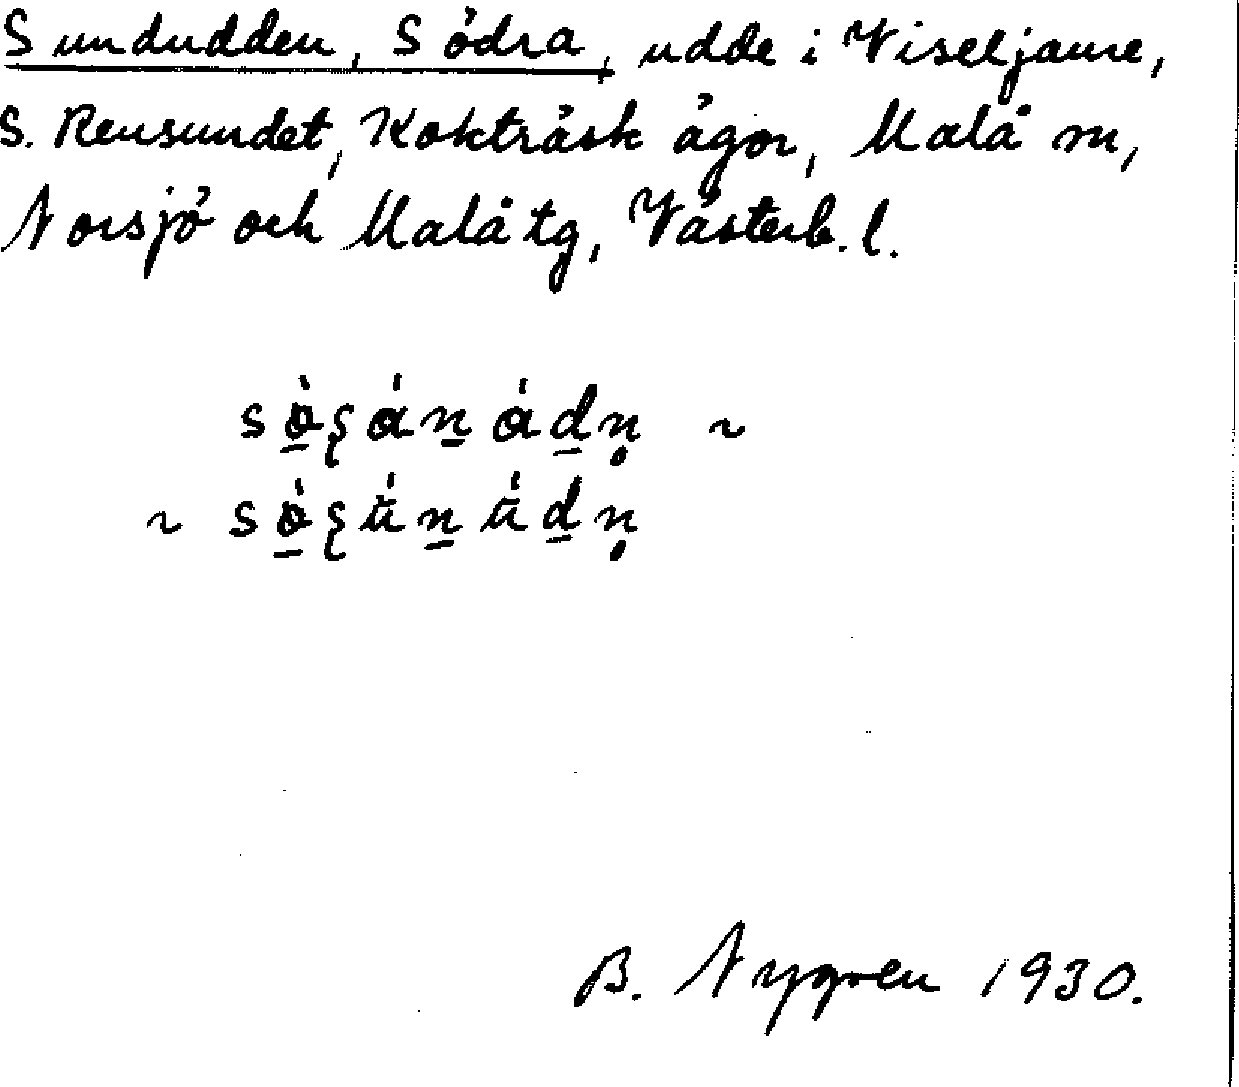 Sundudden, Södra, udde i Viseljaure,
S. Rensundet, Kokträsk ägor, Malå sn,
Norsjö och Malå tg, Västerb. l.
B. Nygren 1930.